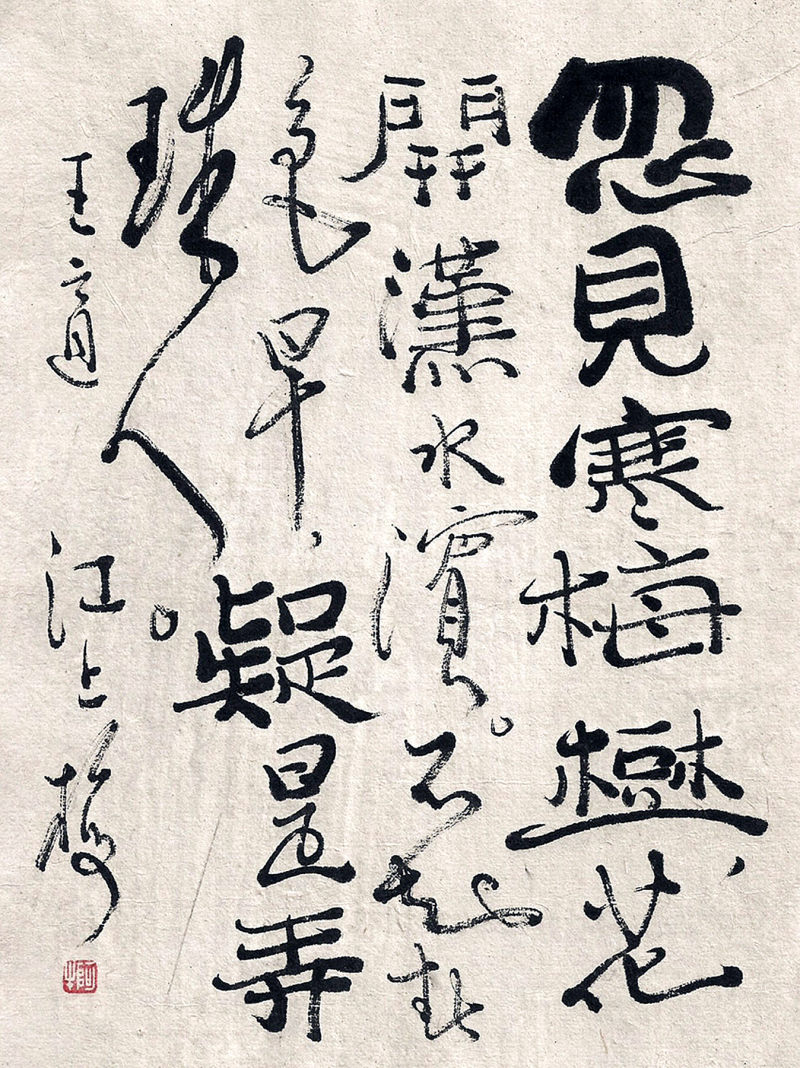 忽見寒梅樹，花
開漢水濱。不知春
色早，疑是弄
珠人。
王適 江上梅